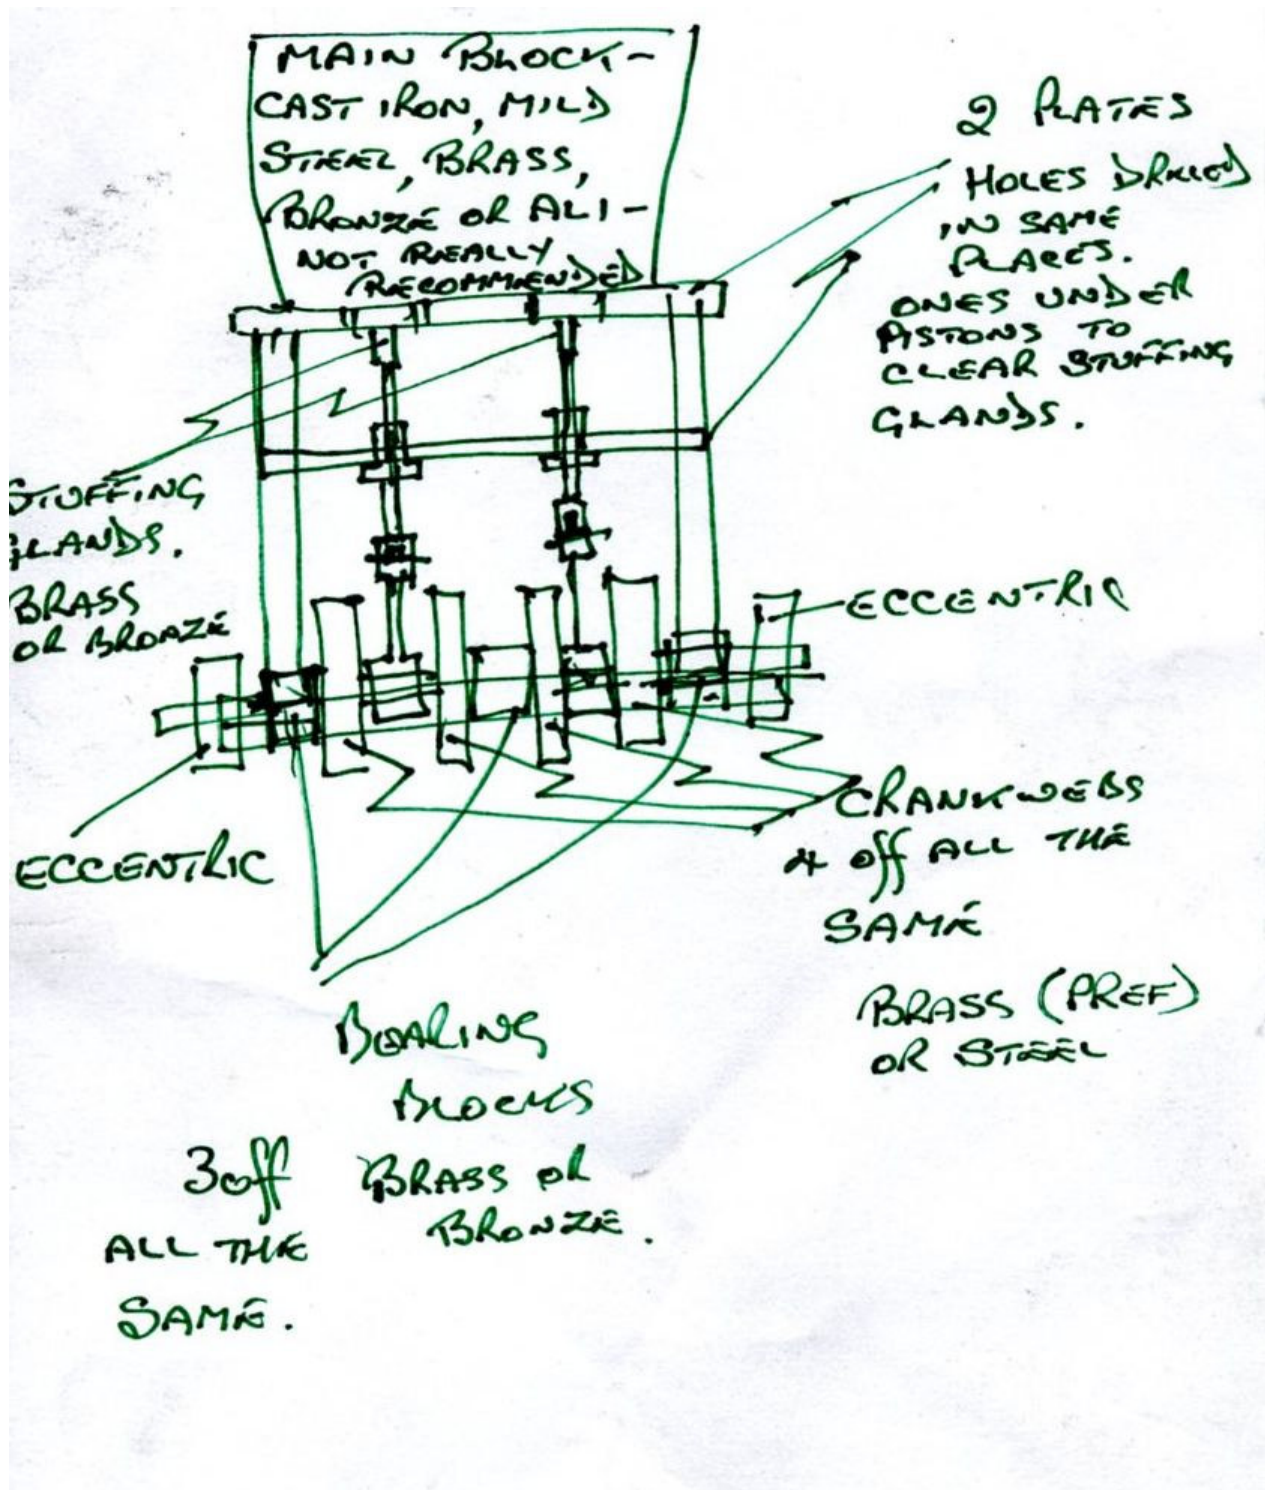 MAIN BLOCK-
CAST IRON, MILD
STEEL, BRASS,
BRONZE OR ALI -
NOT REALLY
RECOMMENDED
2 PLATES
HOLES DRILLED
IN SAME
PLACES.
ONES UNDER
PISTONS TO
CLEAR STUFFING
GLANDS.
STUFFING
GLANDS.
BRASS
OR BRONZE
ECCENTRIC
ECCENTRIC
CRANKWEBS
4 off ALL THE
SAME
BRASS (PREF)
OR STEEL
BEARING
BLOCKS
3 off
BRASS OR
BRONZE.
ALL THE
SAME.